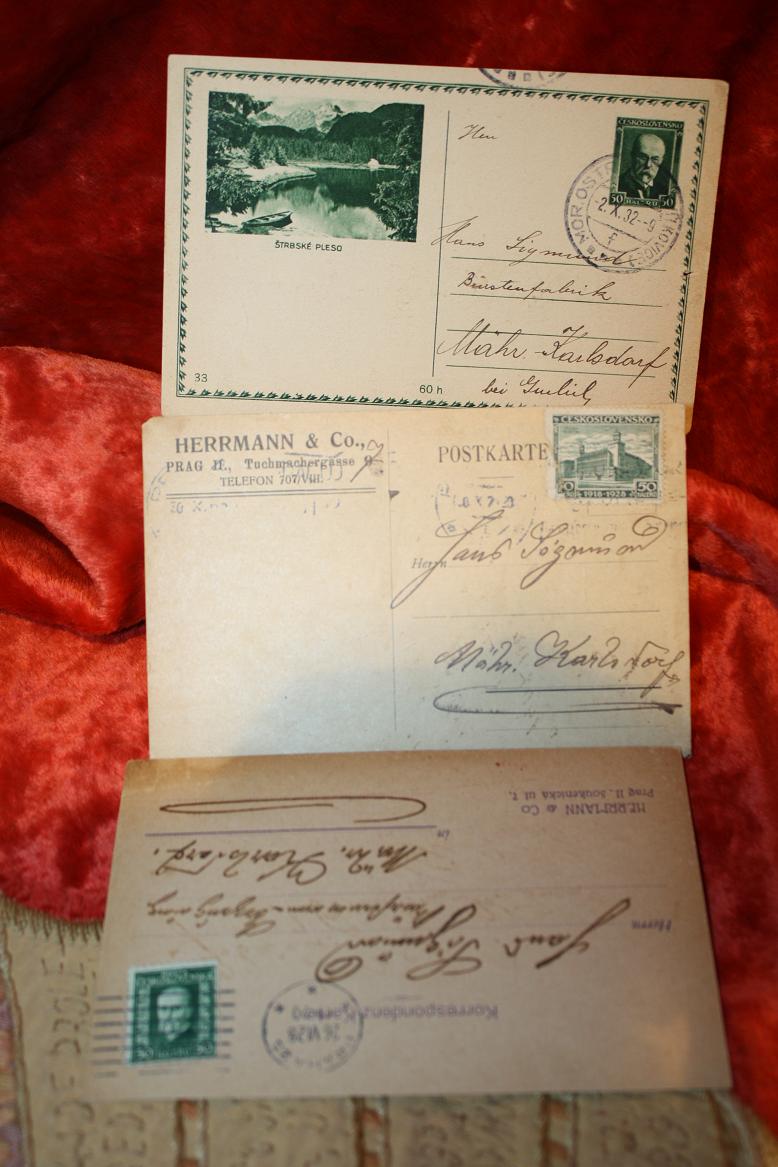 ŠTRBSKÉ PLESO
33
60 h
Herrn
ČESKOSLOVENSKO
50 HAL. 50
MOR. OSTR
2.X.32.-9
f
Hans Sigmund
Bürstenfabrik
Mähr. Karlsdorf
bei
HERRMANN & Co.,
PRAG II., Tuchmachergasse
TELEFON 707/VIII.
POSTKARTE
ČESKOSLOVENSKO
50
1918-1928
Herrn
Hans Sigmund
Mähr. Karlsdorf
HERRMANN & Co
Prag II. Soukenická ul. 7.
Korrespondenz-Karte
26 VI 28
Herrn
Hans Sigmund
in
Mähr. Karlsdorf.